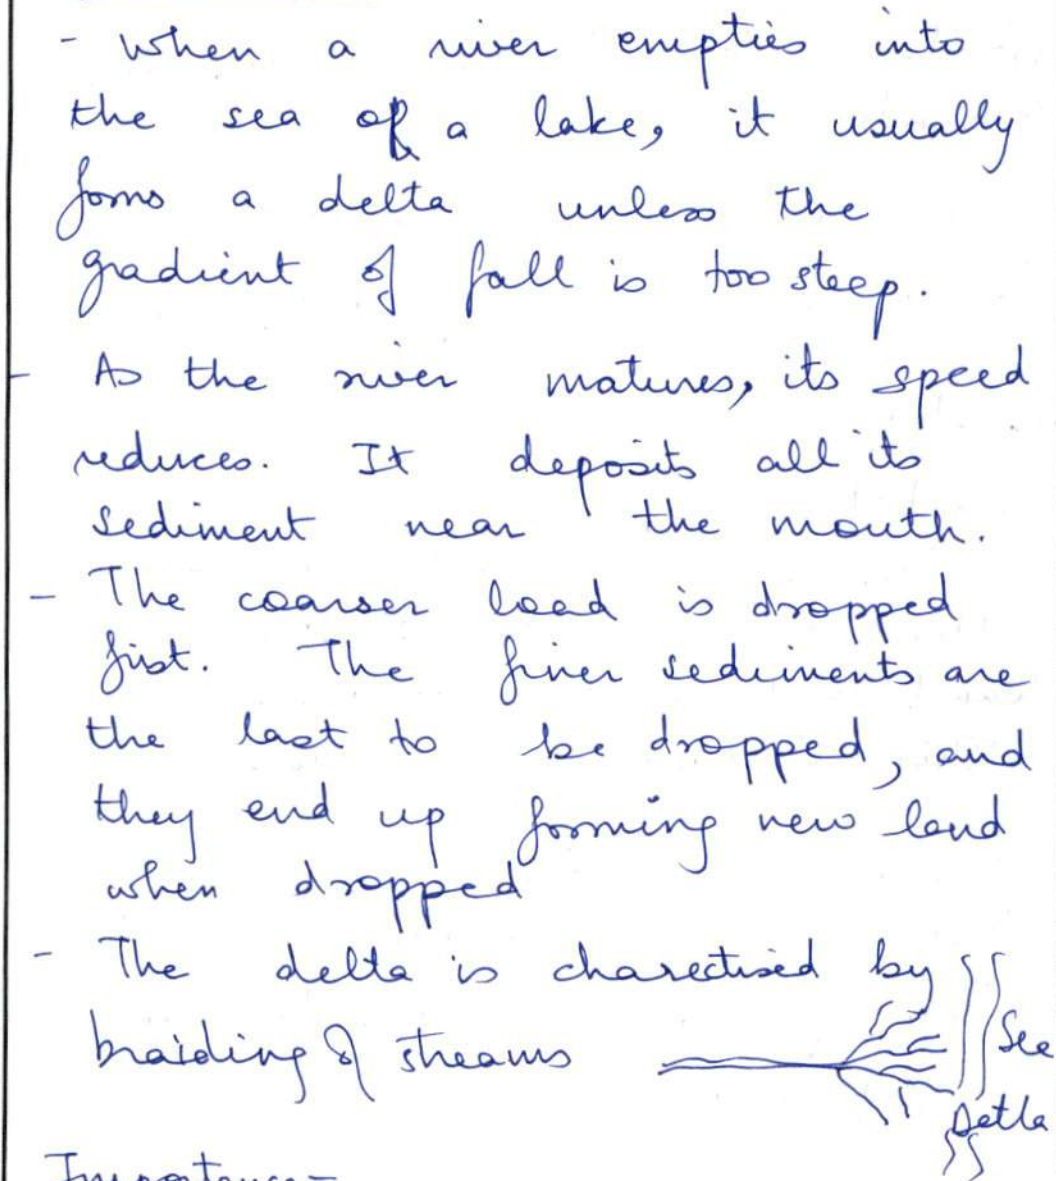 - When a river empties into
the sea or a lake, it usually
forms a delta unless the
gradient of fall is too steep.
- As the river matures, its speed
reduces. It deposits all its
sediment near the mouth.
- The coarser load is dropped
first. The finer sediments are
the last to be dropped, and
they end up forming new land
when dropped
- The delta is charectised by
braiding of streams
Sea
Detla
Importance -